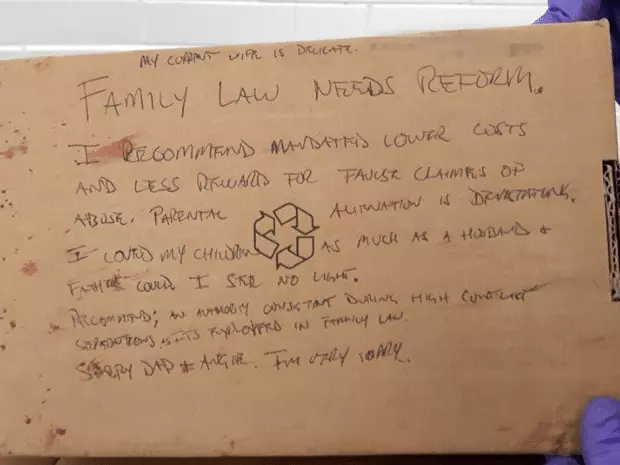 MY CURRENT WIFE IS DELICATE.
FAMILY LAW NEEDS REFORM.
I RECOMMEND MANDATED LOWER COSTS
AND LESS REWARD FOR FAULSE CLAIMES OF
ABUSE. PARENTAL ALIENATION IS DEVASTATING.
I LOVED MY CHILDREN AS MUCH AS A HUSBAND &
FATHER COULD. I SEE NO LIGHT.
RECOMMEND; AN AUTHORITY CONSISTANT DURING HIGH CONFLICT
SEPARATIONS EMPLOYED IN FAMILY LAW.
SORRY DAD & ANGIE. I'M VERY SORRY.